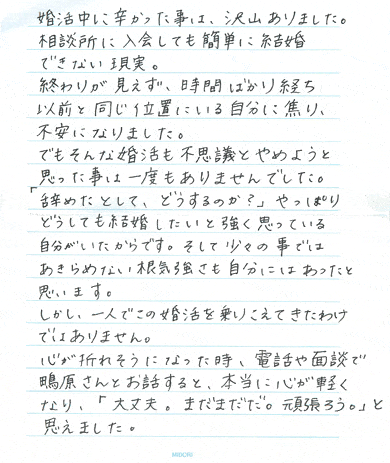 婚活中に辛かった事は、沢山ありました。
相談所に入会しても簡単に結婚
できない現実。
終わりが見えず、時間ばかり経ち
以前と同じ位置にいる自分に焦り、
不安になりました。
でもそんな婚活も不思議とやめようと
思った事は一度もありませんでした。
「辞めたとして、どうするのか?」やっぱり
どうしても結婚したいと強く思っている
自分がいたからです。そして少々の事では
あきらめない根気強さも自分にはあったと
思います。
しかし、一人でこの婚活を乗りこえてきたわけ
ではありません。
心が折れそうになった時、電話や面談で
鴫原さんとお話すると、本当に心が軽く
なり、「大丈夫。まだまだだ。頑張ろう。」と
思えました。
MIDORI